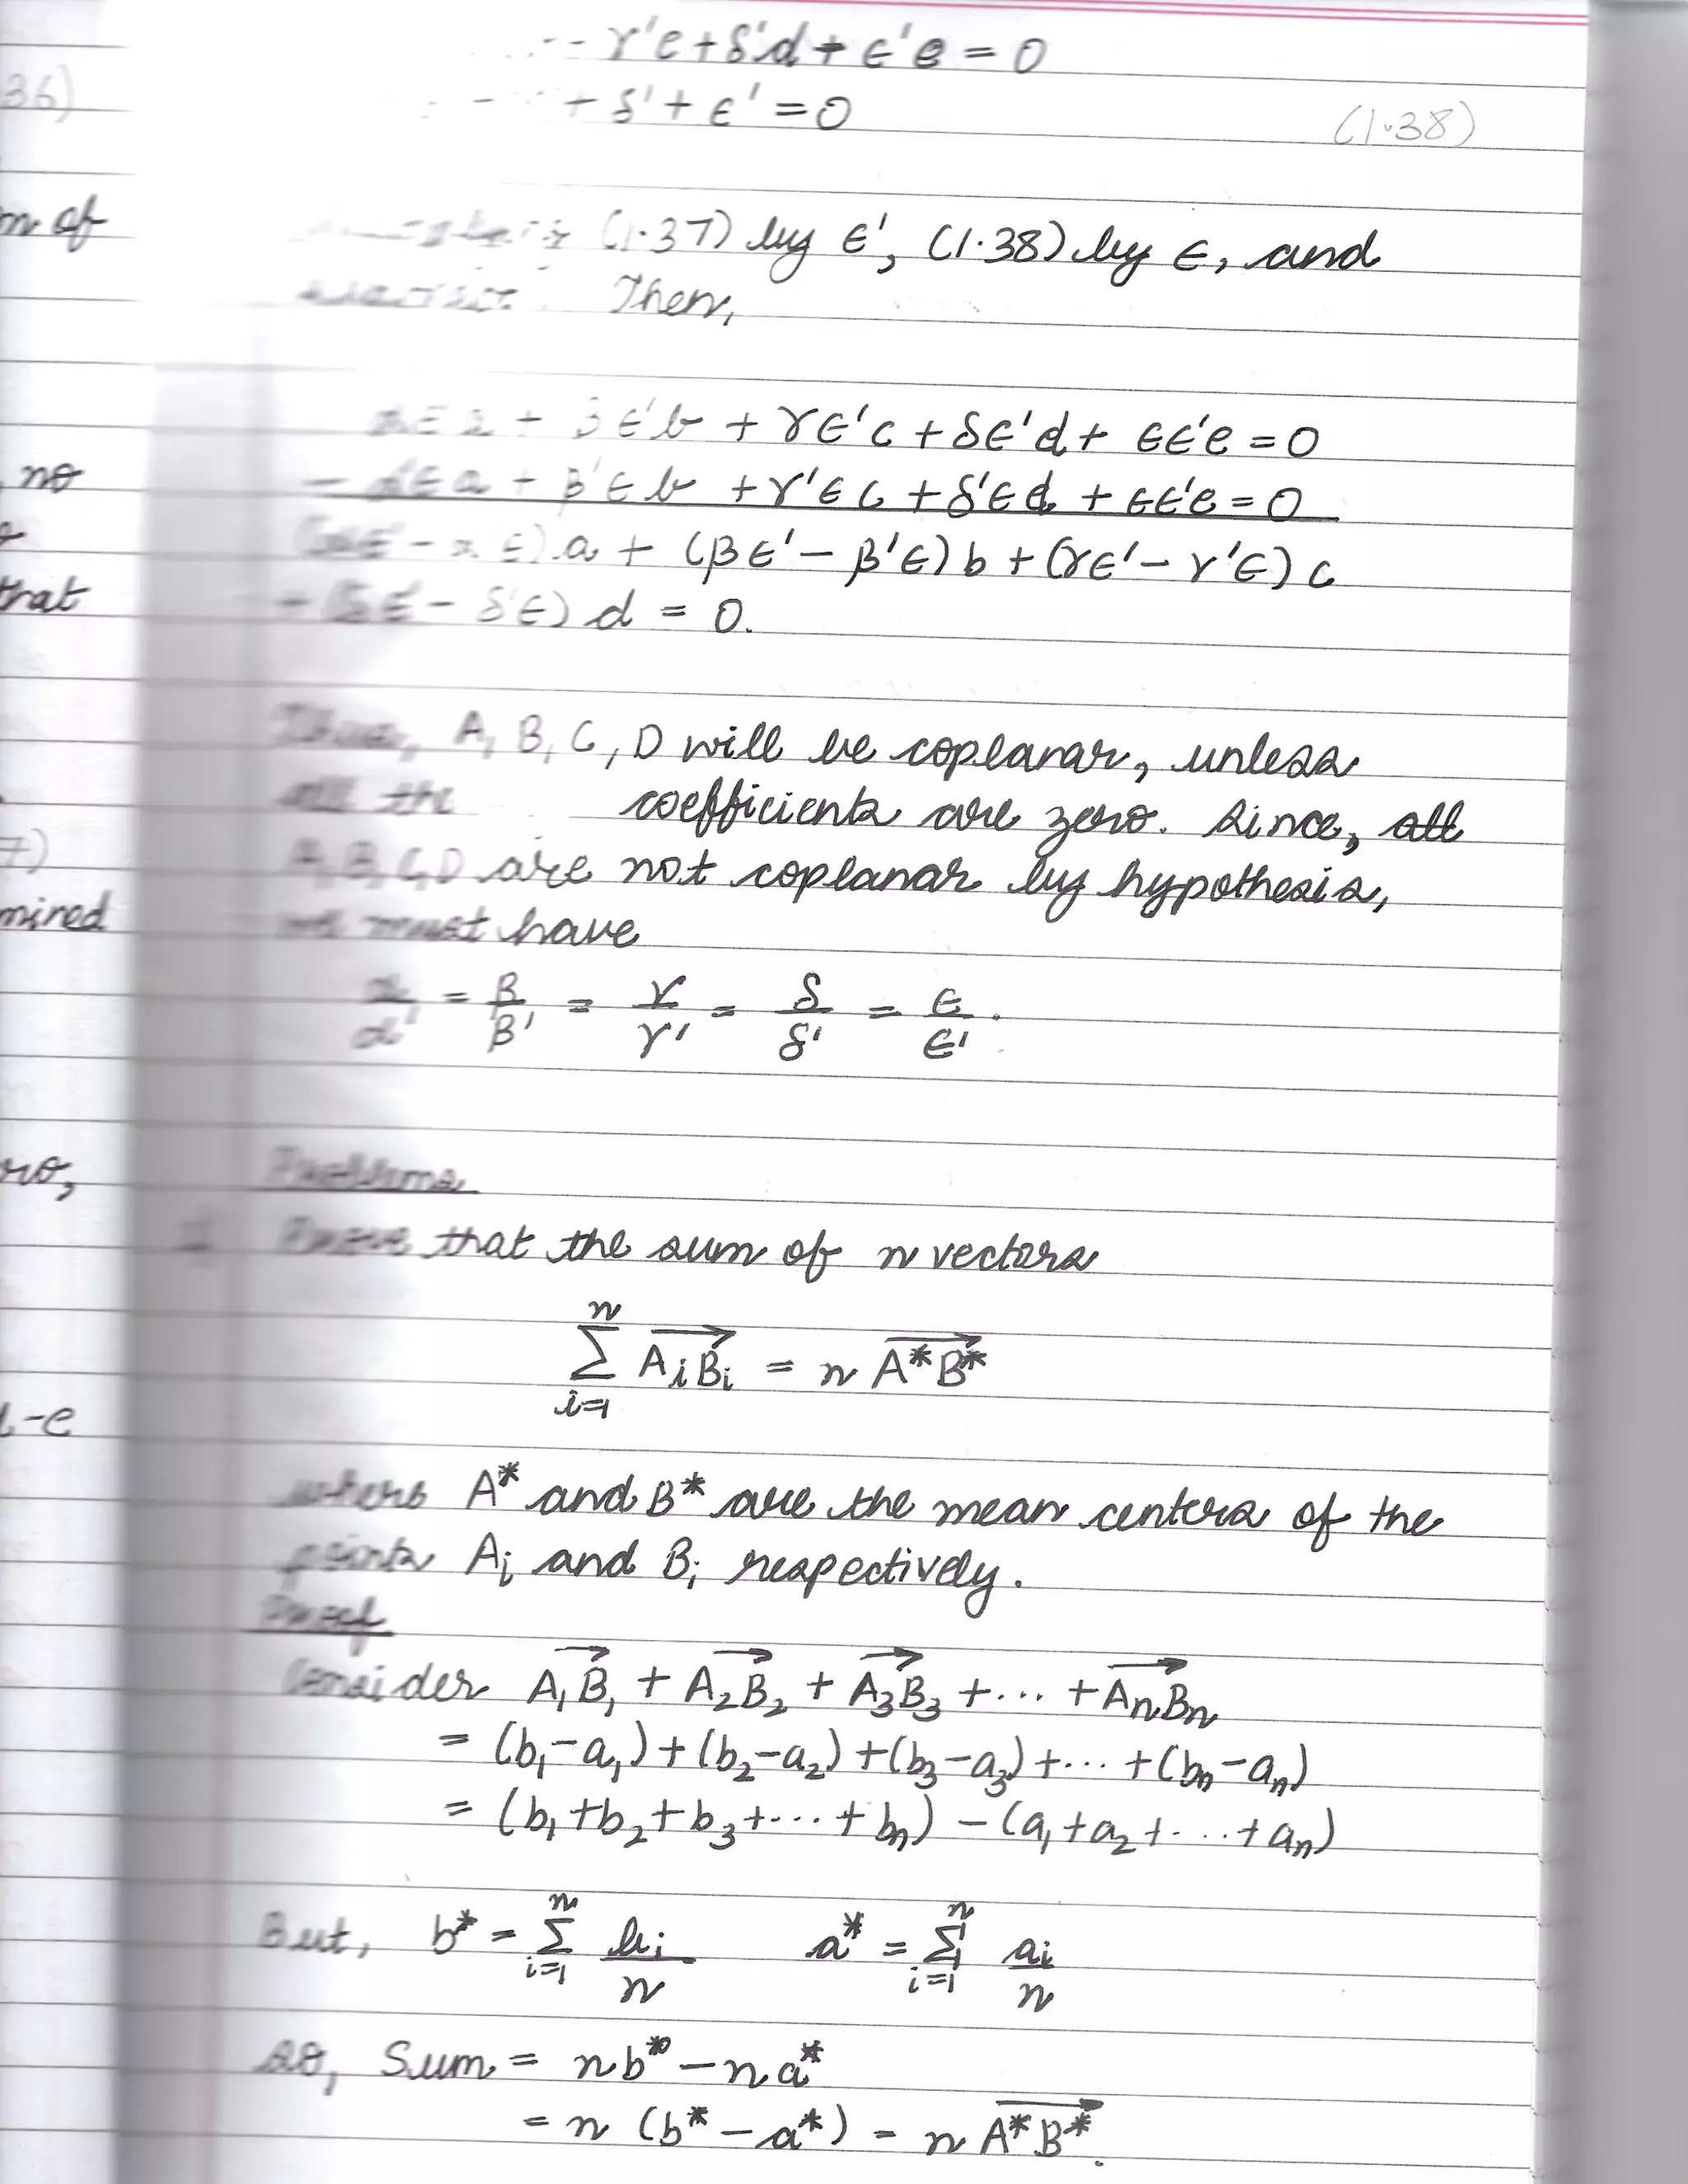 γ'c + δ'd + ε'e = 0
+ δ' + ε' = 0
(1.38)
36)
m of
no
that
7)
mired
ro,
-e
(1.37) by ε', (1.38) by ε, and
Then,
βε'b + γε'c + δε'd + εε'e = 0
β'εb + γ'εc + δ'εd + εε'e = 0
a + (βε' - β'ε) b + (γε' - γ'ε) c
- δ'ε) d = 0.
A, B, C, D will be coplanar, unless
all the coefficients are zero. Since, all
A, B, C, D are not coplanar by hypothesis,
we must have
α/α' = β/β' = γ/γ' = δ/δ' = ε/ε'.
Problems
Prove that the sum of n vectors
∑_{i=1}^{n} A_iB_i→ = n A*B*→
where A* and B* are the mean centers of the
points A_i and B_i respectively.
Proof
Consider A₁B₁→ + A₂B₂→ + A₃B₃→ + ... + AₙBₙ→
= (b₁-a₁) + (b₂-a₂) + (b₃-a₃) + ... + (bₙ-aₙ)
= (b₁+b₂+b₃+...+bₙ) - (a₁+a₂+...+aₙ)
But, b* = ∑_{i=1}^{n} b_i/n a* = ∑_{i=1}^{n} a_i/n
so, Sum = nb* - na*
= n (b* - a*) = n A*B*→.